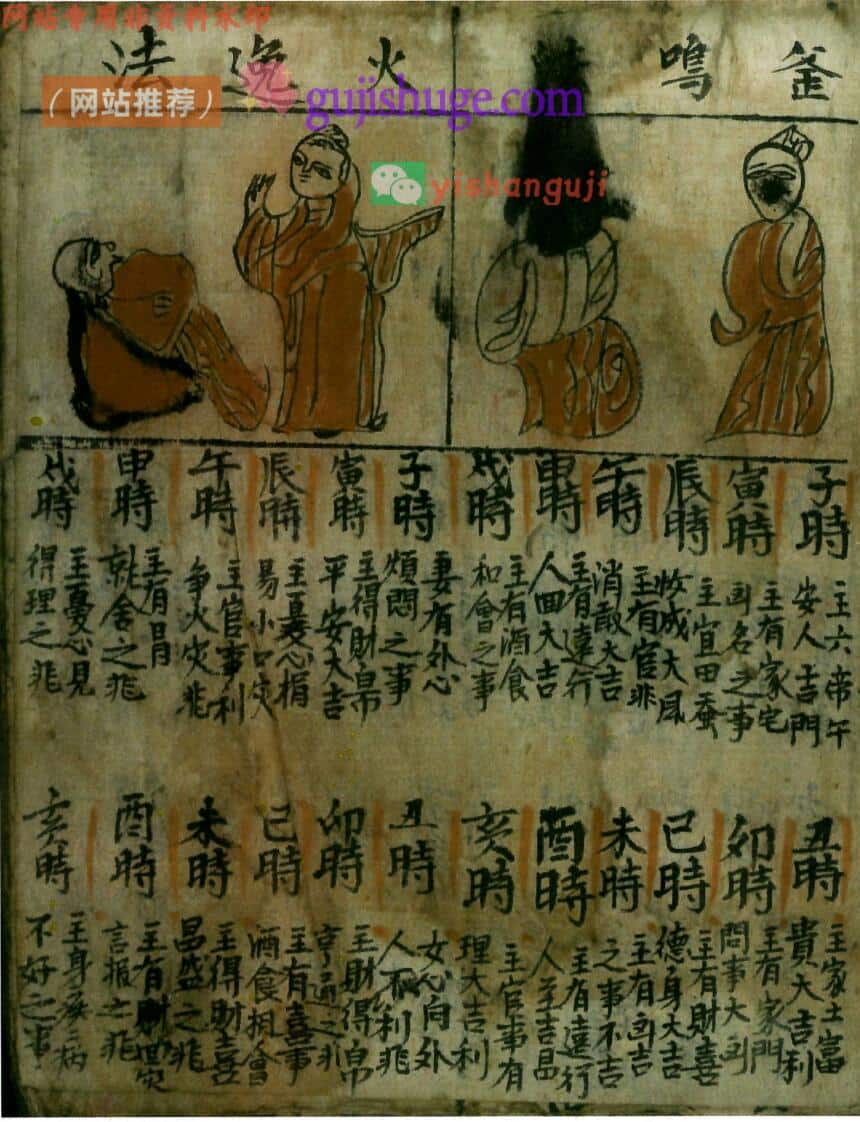 网站专用族资料水印
(网站推荐)
gujishuge.com
yishanguji
釜鳴
子時
主六帝午
安人吉門
寅時
主有家宅
凶名之事
辰時
主宜田蚕
收成大風
午時
主有官非
消散大吉
申時
主有遠行
人回大吉
戌時
主有酒食
和會之事
丑時
主家土富
貴大吉利
卯時
主有家門
問事大凶
巳時
主有財喜
德身大吉
未時
主有凶吉
之事不吉
酉時
主有遠行
人至吉昌
亥時
主官事有
理大吉利
火逸法
子時
妻有外心
煩悶之事
寅時
主得財帛
平安大吉
辰時
主憂心損
易小口灾
午時
主官事利
争火灾兆
申時
主有冐
就舍之兆
戌時
主憂心見
得理之兆
丑時
女心向外
人不利兆
卯時
主財得帛
亨通之兆
巳時
主有喜事
酒食相會
未時
主得財喜
昌盛之兆
酉時
主有財灾
言报之兆
亥時
主身疾病
不好之事